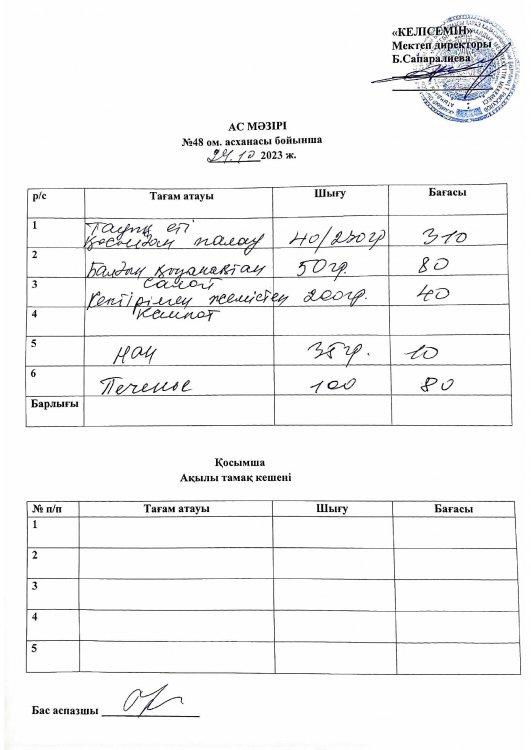 «КЕЛІСЕМІН»
Мектеп директоры
Б.Сапаралиева
АС МӘЗІРІ
№48 ом. асханасы бойынша
24.10 2023 ж.
р/с Тағам атауы Шығу Бағасы
1 Тауық еті
қосылған палау 40/230гр 310
2 Балдың қиянақтан 50гр. 80
салат
3 Кептірілген жемістен 200гр. 40
4 компот
5 Нан 35гр. 10
6 Печенье 100 80
Барлығы
Қосымша
Ақылы тамақ кешені
№ п/п Тағам атауы Шығу Бағасы
1
2
3
4
5
Бас аспазшы